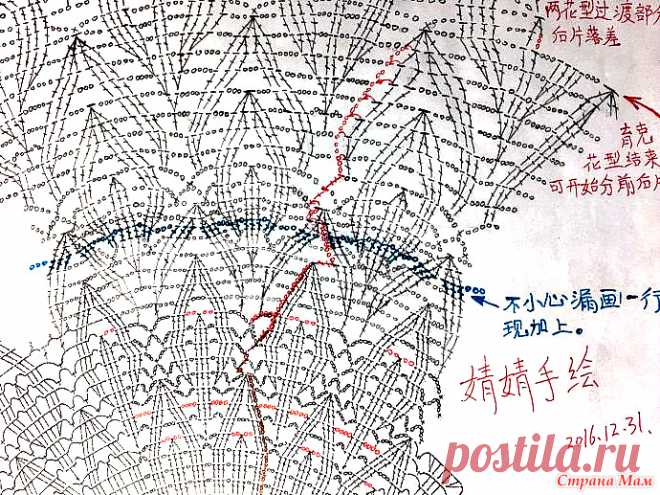 两花型过渡部分
后片落差
育克
花型结束
可开始分前后片
不小心漏画一行
现加上。
婧婧手绘
2016.12.31.
postila.ru
Страна Мам